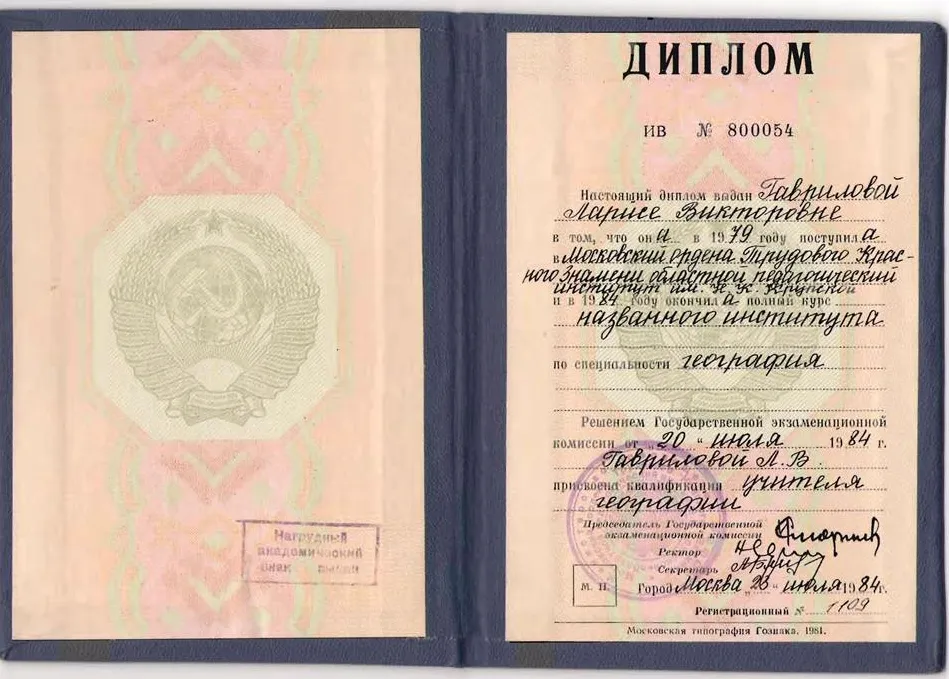 Нагрудный
академический
знак выдан
ДИПЛОМ
ИВ № 800054
Настоящий диплом выдан Гавриловой
Ларисе Викторовне
в том, что она в 1979 году поступила
в Московский ордена Трудового Крас-
ного Знамени областной педагогический
институт им. Н. К. Крупской
и в 1984 году окончила полный курс
названного института
по специальности география
Решением Государственной экзаменационной
комиссии от „20“ июля 1984 г.
Гавриловой Л. В.
присвоена квалификация учителя
географии
Председатель Государственной
экзаменационной комиссии
Ректор
Секретарь
М. П.
Город Москва „23“ июля 1984г.
Регистрационный № 1109
Московская типография Гознака. 1981.